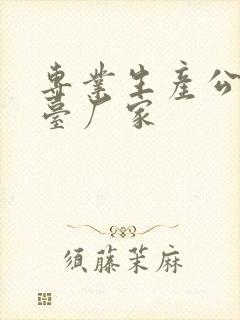 專業生產公
臺厂家
須藤茉麻